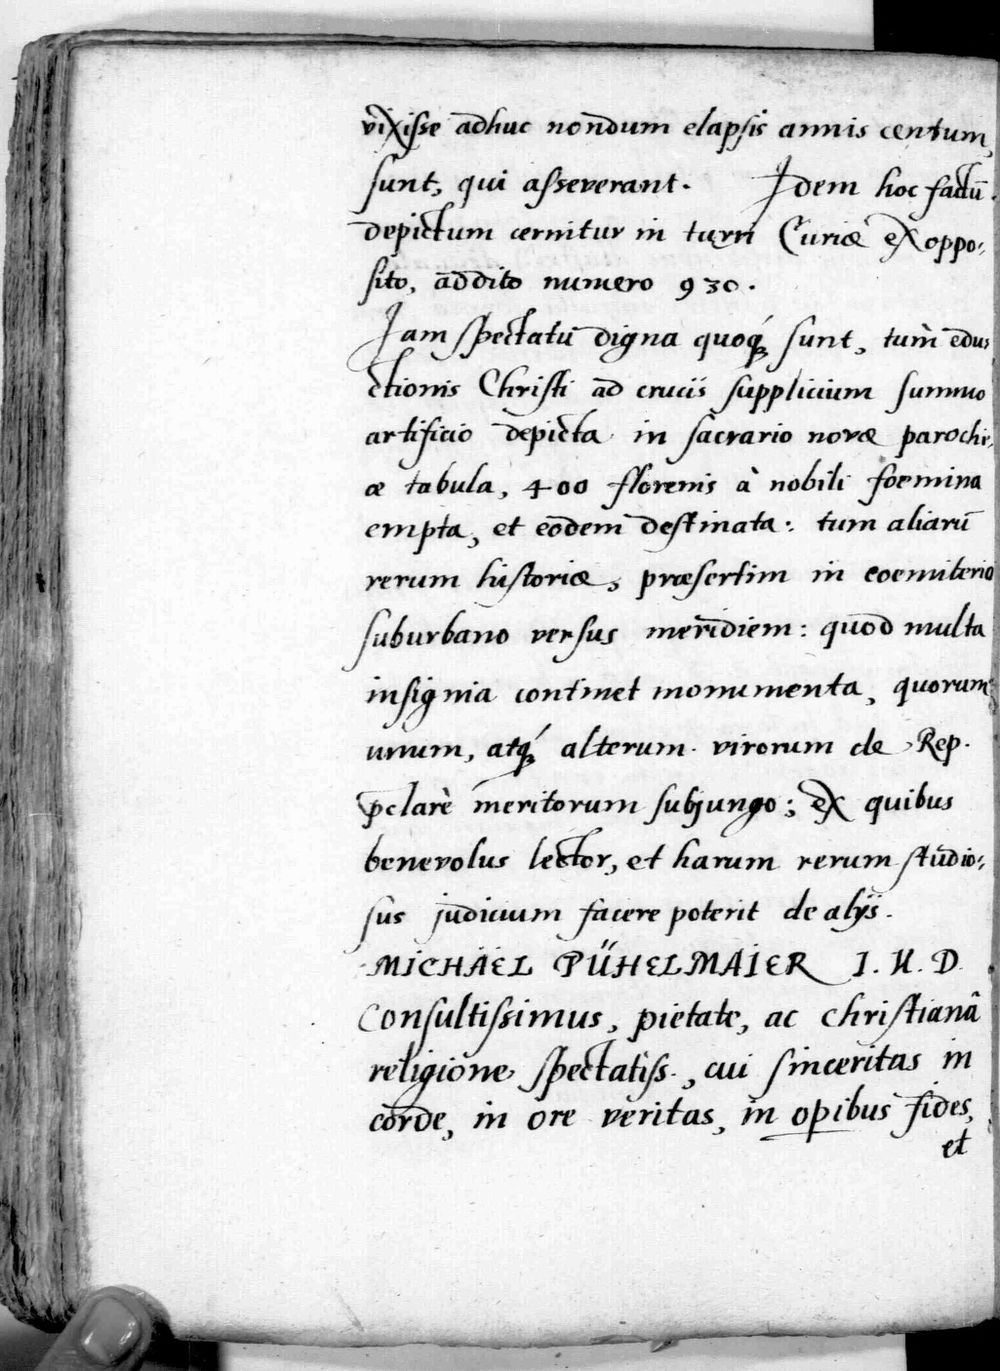 vixisse adhuc nondum elapsis annis centum,
sunt, qui asseverant. Idem hoc factū
depictum cernitur in turri Curiæ ex oppo-
sito, addito numero 930.
Jam spectatū digna quoq́; sunt, tum̀ edu-
ctionis Christi ad crucis supplicium summo
artificio depicta in sacrario novæ parochi-
æ tabula, 400 florenis à nobili foemina
empta, et eodem destinata: tum aliarū
rerum historiæ, præsertim in coemiterio
suburbano versus meridiem: quod multa
insignia continet monumenta, quorum
unum, atq́; alterum virorum de Rep.
p̄clarè meritorum subjungo; ex quibus
benevolus lector, et harum rerum studio-
sus judicium facere poterit de alijs.
MICHAËL PÜHELMAIER I. U. D.
Consultissimus, pietate, ac christianâ
religione spectatiss., cui sinceritas in
corde, in ore veritas, in opibus fides,
et